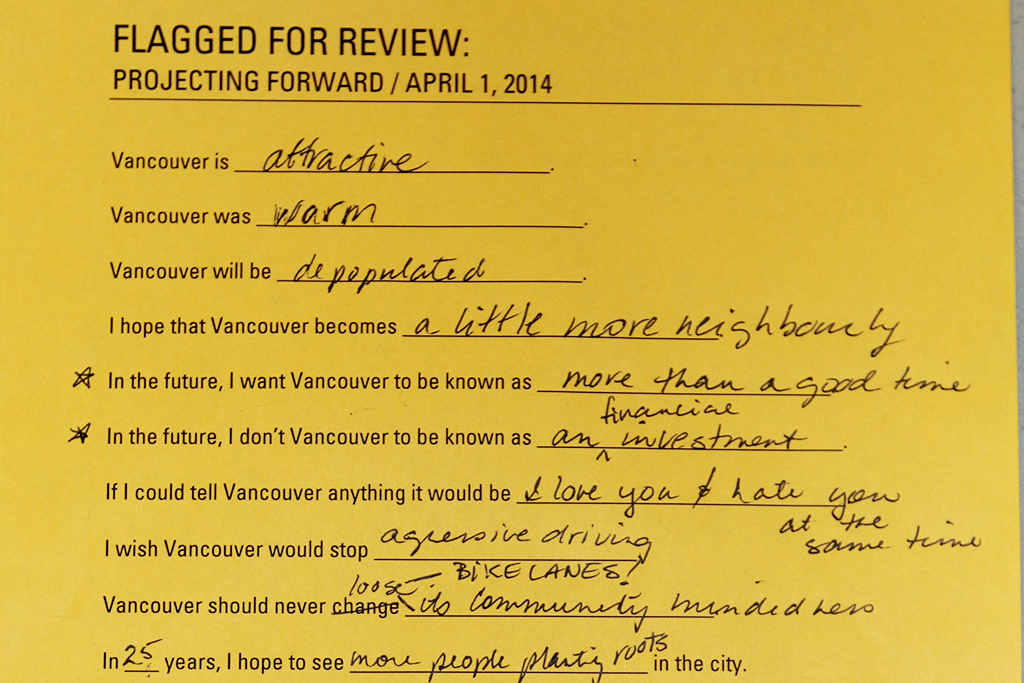 FLAGGED FOR REVIEW:
PROJECTING FORWARD / APRIL 1, 2014
Vancouver is attractive.
Vancouver was warm.
Vancouver will be depopulated.
I hope that Vancouver becomes a little more neighbourly
In the future, I want Vancouver to be known as more than a good time
financial
In the future, I don't Vancouver to be known as an investment.
If I could tell Vancouver anything it would be I love you & hate you
at the
same time
I wish Vancouver would stop agressive driving
BIKE LANES!
loose
Vancouver should never change its community mindedness
In 25 years, I hope to see more people planting roots in the city.